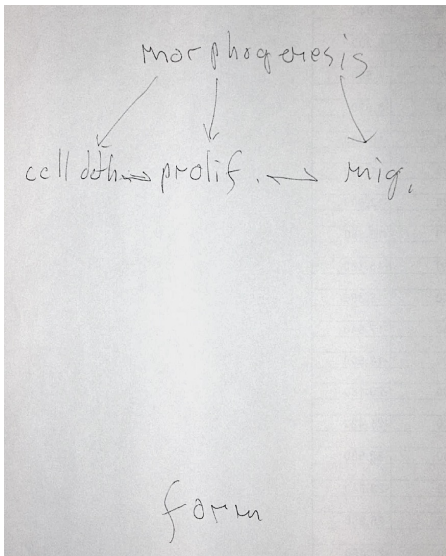 morphogenesis
cell dth prolif. mig.
form